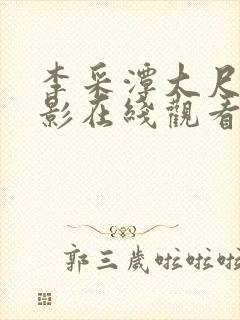 李采潭大尺
影在线觀看
郭三歲啦啦啦